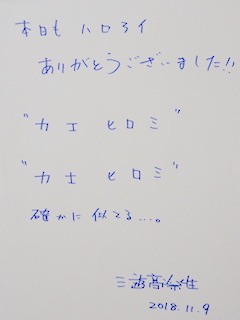 本日も ハロライ
ありがとうございました!!
"カエ ヒロミ"
"カ士 ヒロミ"
確かに 似てる...。
2018.11.9